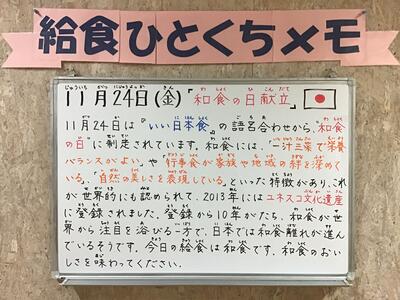 給食ひとくちメモ
11月24日(金)『和食の日献立』
11月24日は『いい日本食』の語名合わせから、"和食
の日"に制定されています。和食には、「一汁三菜で栄養
バランスがよい」や「行事食が家族や地域の絆を深めて
いる」、「自然の美しさを表現している」といった特徴があり、これ
が世界的にも認められて、2013年にはユネスコ文化遺産
に登録されました。登録から10年がたち、和食が世
界から注目を浴びる一方で、日本では和食離れが進ん
でいるそうです。今日の給食は和食です。和食のおい
しさを味わってください。